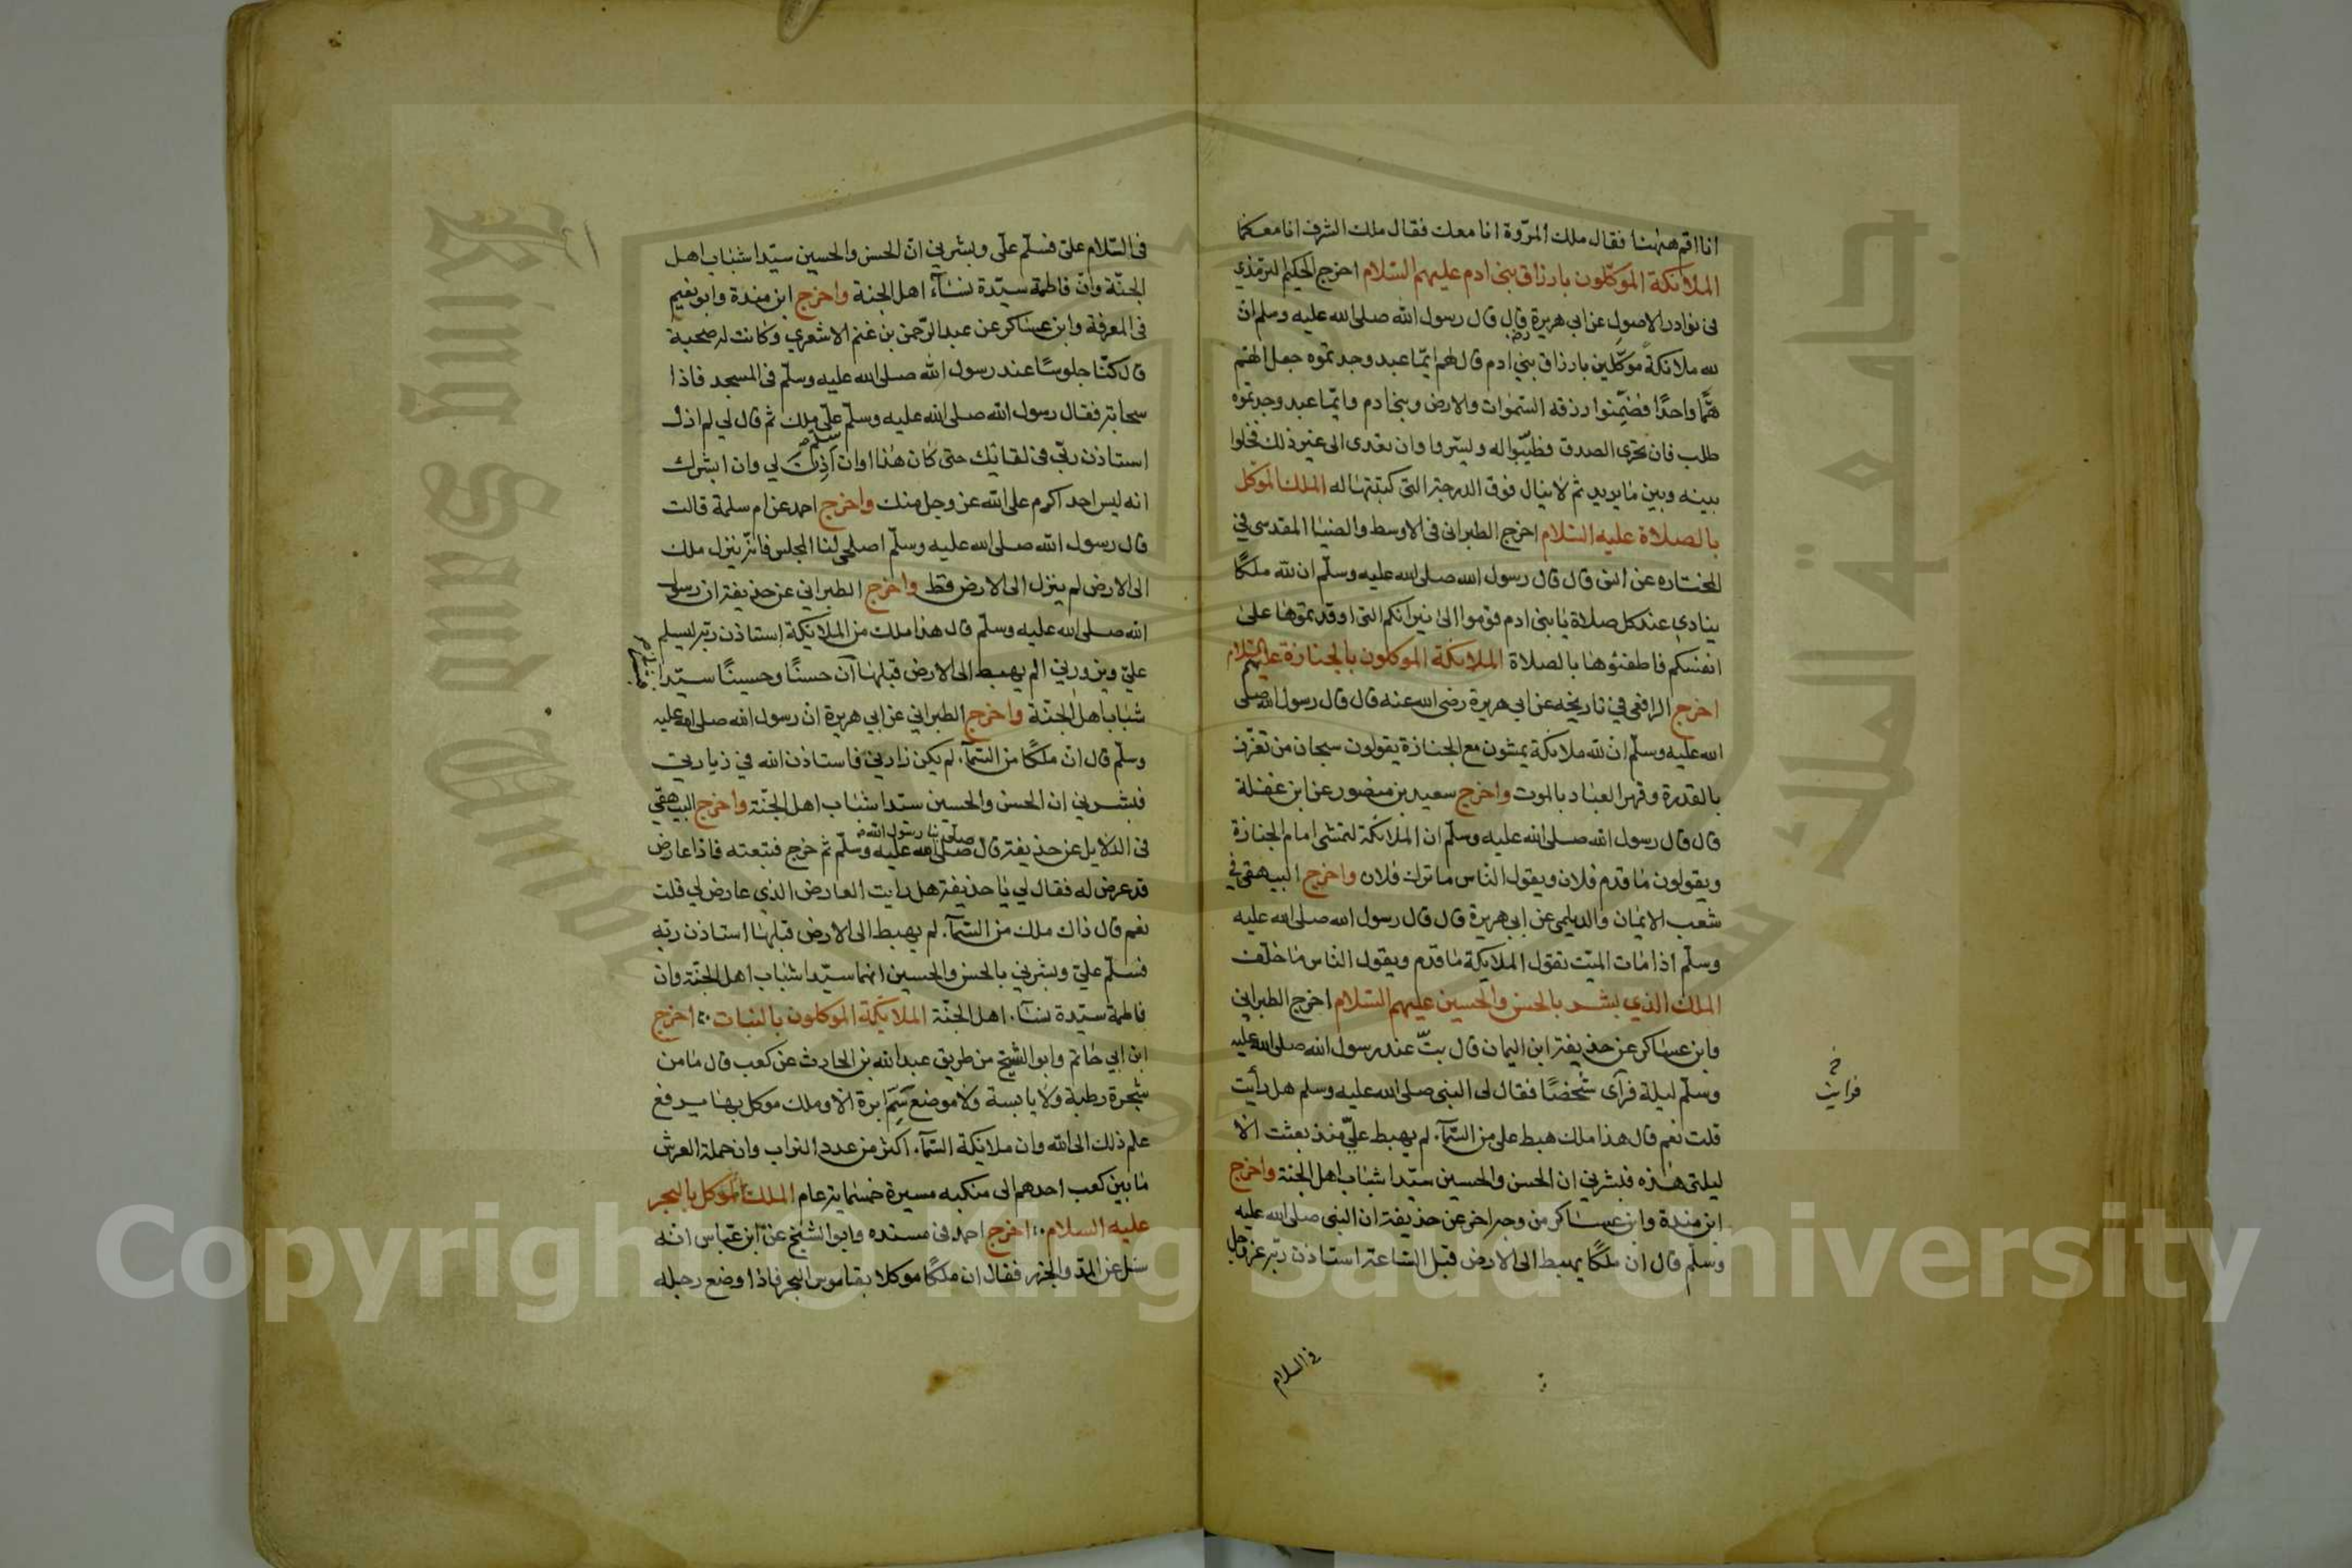 انا اقم ههنا فقال ملك المروّة انا معك فقال ملك الشرف انا معكما
الملائكة الموكّلون بارزاق بني ادم عليهم السّلام اخرج الحكيم الترمذي
في نوادر الاصول عن ابي هريرة رضي قال قال رسول الله صلى الله عليه وسلم ان
لله ملائكةً موكّلين بارزاق بني ادم قال لهم ايّما عبد وجدتموه جعل الهمّ
همًّا واحدًا فضمّنوا رزقه السّموات والارض وبني ادم وايّما عبد وجدتموه
طلب فان تحرّى الصدق فطيّبوا له ويسّروا وان تعدى الى غير ذلك فخلوا
بينه وبين ما يريد ثم لا ينال فوق الدرجة التي كتبتها له الملك الموكل
بالصلاة عليه السّلام اخرج الطبراني في الاوسط والضيا المقدسي في
المختاره عن انس قال قال رسول الله صلى الله عليه وسلّم ان لله ملكًا
ينادي عند كل صلاة يا بني ادم قوموا الى نيرانكم التي اوقدتموها على
انفسكم فاطفئوها بالصلاة الملائكة الموكلون بالجنازة عليهم السّلام
اخرج الرافعي في تاريخه عن ابي هريرة رضي الله عنه قال قال رسول الله صلى
الله عليه وسلّم انّ لله ملائكة يمشون مع الجنازة يقولون سبحان من تعزّز
بالقدرة وقهر العباد بالموت واخرج سعيد بن منصور عن ابن غفلة
قال قال رسول الله صلى الله عليه وسلّم ان الملائكة لتمشي امام الجنازة
ويقولون ما قدم فلان ويقول الناس ما ترك فلان واخرج البيهقي في
شعب الايمان والديلمي عن ابي هريرة قال قال رسول الله صلى الله عليه
وسلّم اذا مات الميّت تقول الملايكة ما قدّم ويقول الناس ما خلّف
الملك الذي بشر بالحسن والحسين عليهم السّلام اخرج الطبراني
وابن عساكر عن حذيفة ابن اليمان قال بتّ عند رسول الله صلى الله عليه
وسلّم ليلة فرآى شخصًا فقال لي النبي صلى الله عليه وسلم هل رأيت
خ
فرايت
قلت نعم قال هذا ملك هبط على من السّمآء لم يهبط عليّ منذ بعثت الا
ليلتي هذه فبشرني ان الحسن والحسين سيّدا شباب اهل الجنة واخرج
ابن مندة وابن عساكر من وجه اخر عن حذيفة ان النبي صلى الله عليه
وسلّم قال ان ملكًا يهبط الى الارض قبل السّاعة استاذن ربّه عز وجل
في السلام
في السّلام عليّ فسلّم علّى وبشّرني انّ الحسن والحسين سيّدا شباب اهل
الجنّة وانّ فاطمة سيّدة نسآء اهل الجنة واخرج ابن مندة وابو نعيم
في المعرفة وابن عساكر عن عبد الرّحمن بن غنم الاشعري وكانت له صحبة
قال كنّا جلوسًا عند رسول الله صلى الله عليه وسلّم في المسجد فاذا
سحابة فقال رسول الله صلى الله عليه وسلّم سلم علّي ملك ثم قال لي لم ازل
استاذن ربّي في لقائك حتى كان هذا اوان اذِنَ لي وان ابشرك
انه ليس احد اكرم على الله عز وجل منك واخرج احمد عن ام سلمة قالت
قال رسول الله صلى الله عليه وسلّم اصلحي لنا المجلس فانّه ينزل ملك
الى الارض لم ينزل الى الارض قط واخرج الطبراني عن حذيفة ان رسول
الله صلى الله عليه وسلّم قال هذا ملك من الملايكة استاذن ربّه ليسلم
عليّ ويزورني لم يهبط الى الارض قبلها انّ حسنًا وحسينًا سيّدا
شباب اهل الجنّة واخرج الطبراني عن ابي هريرة ان رسول الله صلى الله عليه
وسلّم قال انّ ملكًا من السّمآء لم يكن زارني فاستاذن الله في زيارتي
فبشّرني ان الحسن والحسين سيّدا شباب اهل الجنّة واخرج البيهقي
في الدلايل عن حذيفة قال صلى بنا رسول الله صلى الله عليه وسلّم ثم خرج فتبعته فاذا عارض
قد عرض له فقال لي يا حذيفة هل رايت العارض الذي عارض لي قلت
نعم قال ذاك ملك من السّمآء لم يهبط الى الارض قبلها استاذن ربّه
فسلّم عليّ وبشّرني بالحسن والحسين انهما سيّدا شباب اهل الجنّة وان
فاطمة سيّدة نسآء اهل الجنّة الملائكة الموكلون بالنبات اخرج
ابن ابي حاتم وابو الشيخ من طريق عبد الله بن الحارث عن كعب قال ما من
شجرة رطبة ولا يابسة ولا موضع ابرة الا وملك موكل بها يرفع
علم ذلك الى الله وان ملايكة السّمآء اكثر من عدد التراب وان حملة العرش
ما بين كعب احدهم الى منكبه مسيرة خمسماية عام الملك الموكل بالبحر
عليه السلام اخرج احمد في مسنده وابو الشيخ عن ابن عباس انه
سئل عن المدّ والجزر فقال ان ملكًا موكلا بقاموس البحر فاذا وضع رجله
King Saud University
جامعة الملك سعود
Copyright © King Saud University